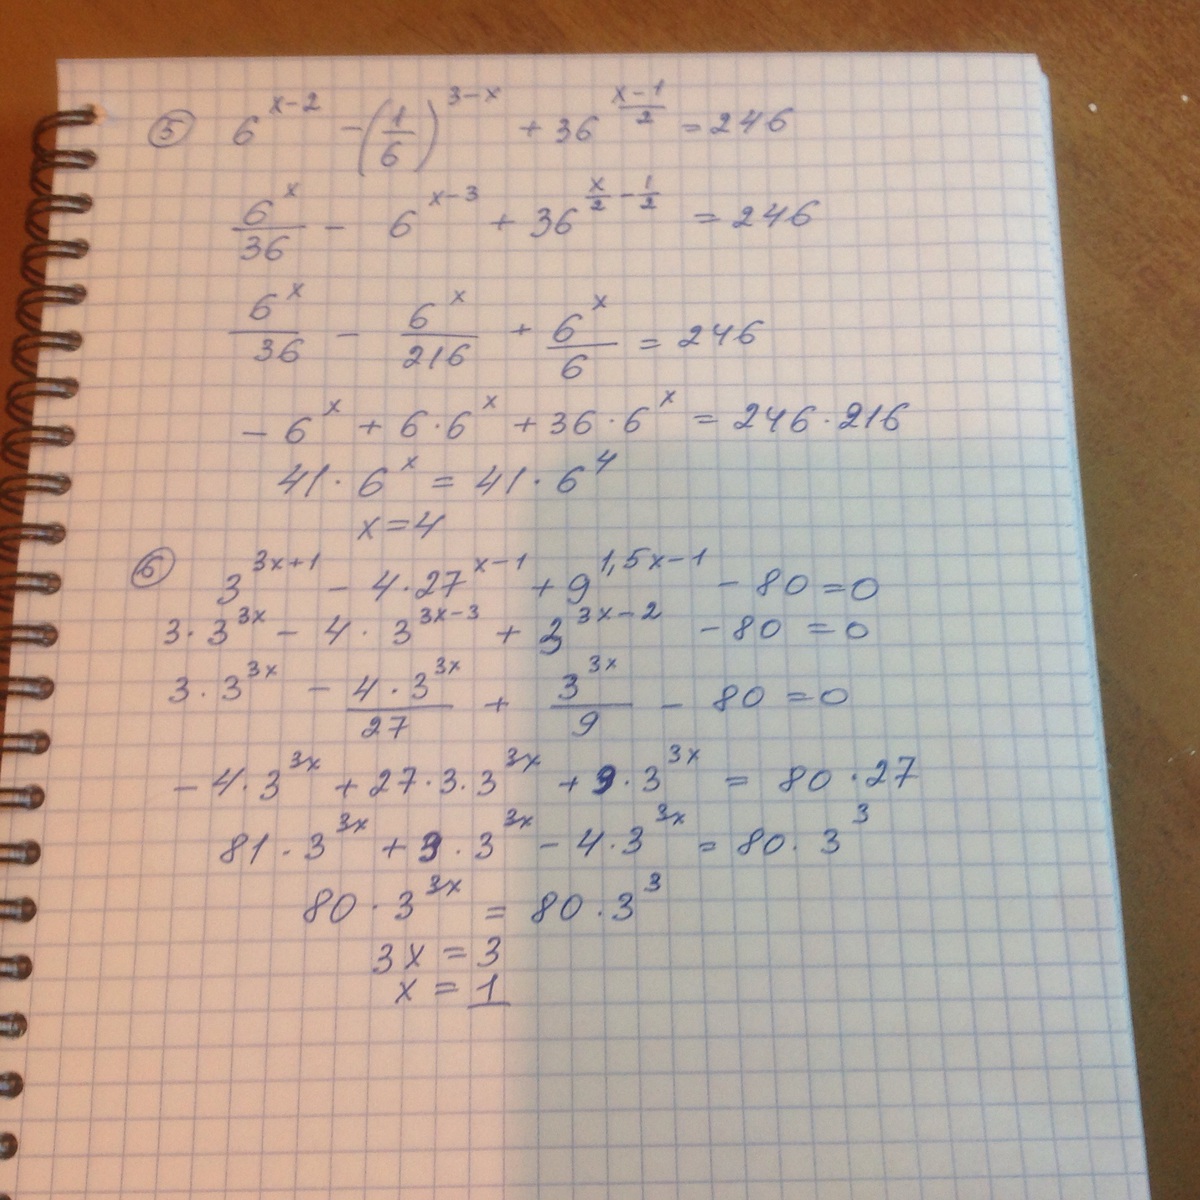 ⑤ 6^(x-2) - (1/6)^(3-x) + 36^((x-1)/2) = 246
6^x/36 - 6^(x-3) + 36^(x/2 - 1/2) = 246
6^x/36 - 6^x/216 + 6^x/6 = 246
- 6^x + 6·6^x + 36·6^x = 246·216
41·6^x = 41·6^4
x=4
⑥ 3^(3x+1) - 4·27^(x-1) + 9^(1,5x-1) - 80=0
3·3^(3x) - 4·3^(3x-3) + 3^(3x-2) - 80 =0
3·3^(3x) - 4·3^(3x)/27 + 3^(3x)/9 - 80 =0
- 4·3^(3x) + 27·3·3^(3x) + 3·3^(3x) = 80·27
81·3^(3x) + 3·3^(3x) - 4·3^(3x) = 80·3^3
80·3^(3x) = 80·3^3
3x = 3
x = 1